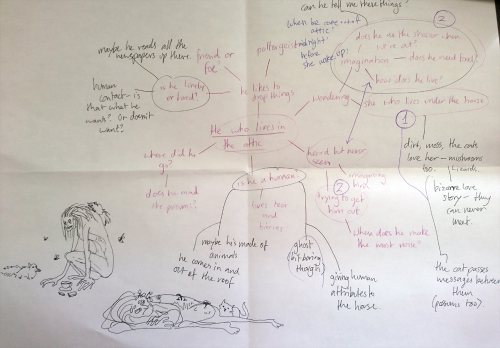 can he tell me these things?
2
when he came out of
attic?
midnight?
before
she woke up?
does he use the shower when
we're out?
imagination — does he need food?
how does he live?
maybe he reads all the
newspapers up there.
friend or
foe?
poltergeist
he likes to
drop things
wondering
she who lives under the house
human
contact - is
that what he
wants? Or doesn't
want?
is he lonely
or bored?
He who lives in
the attic
heard but never
seen
1
dirt, mess, the cats
love her - mushrooms
too. Lizards.
bizarre love
story - they
can never
meet.
the cat passes
messages between
them
(possums too)
where did he
go?
does he mind
the possums?
is he a human?
lives near
and
imagining
him
2
trying to get
him out.
where does he make
the most noise?
maybe his made of
animals
he comes in and
out of the roof
ghost
but boring
though
giving human
attributes to
the house.